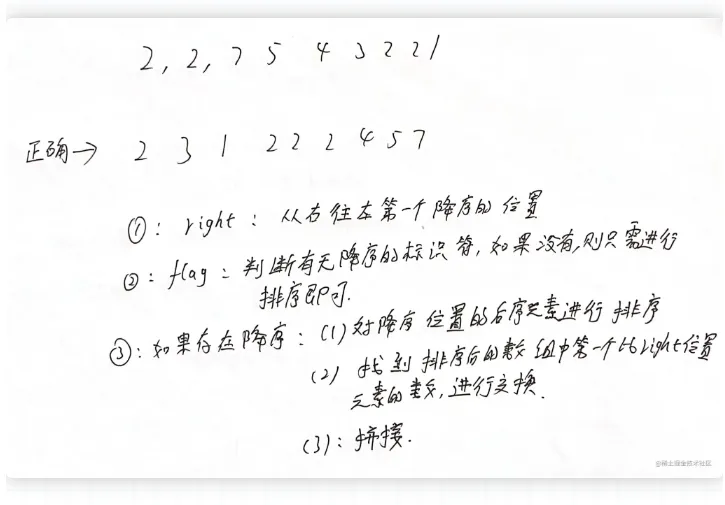 2, 2, 7 5 4 3 2 2 1
正确→ 2 3 1 2 2 2 4 5 7
①: right: 从右往左第一个降序的位置
②: flag: 判断有无降序的标识符, 如果没有,则只需进行
排序即可.
③: 如果存在降序: (1) 对降序位置的后序元素进行排序
(2) 找到排序后的数组中第一个比right位置
元素的数, 进行交换.
(3): 拼接.
@稀土掘金技术社区